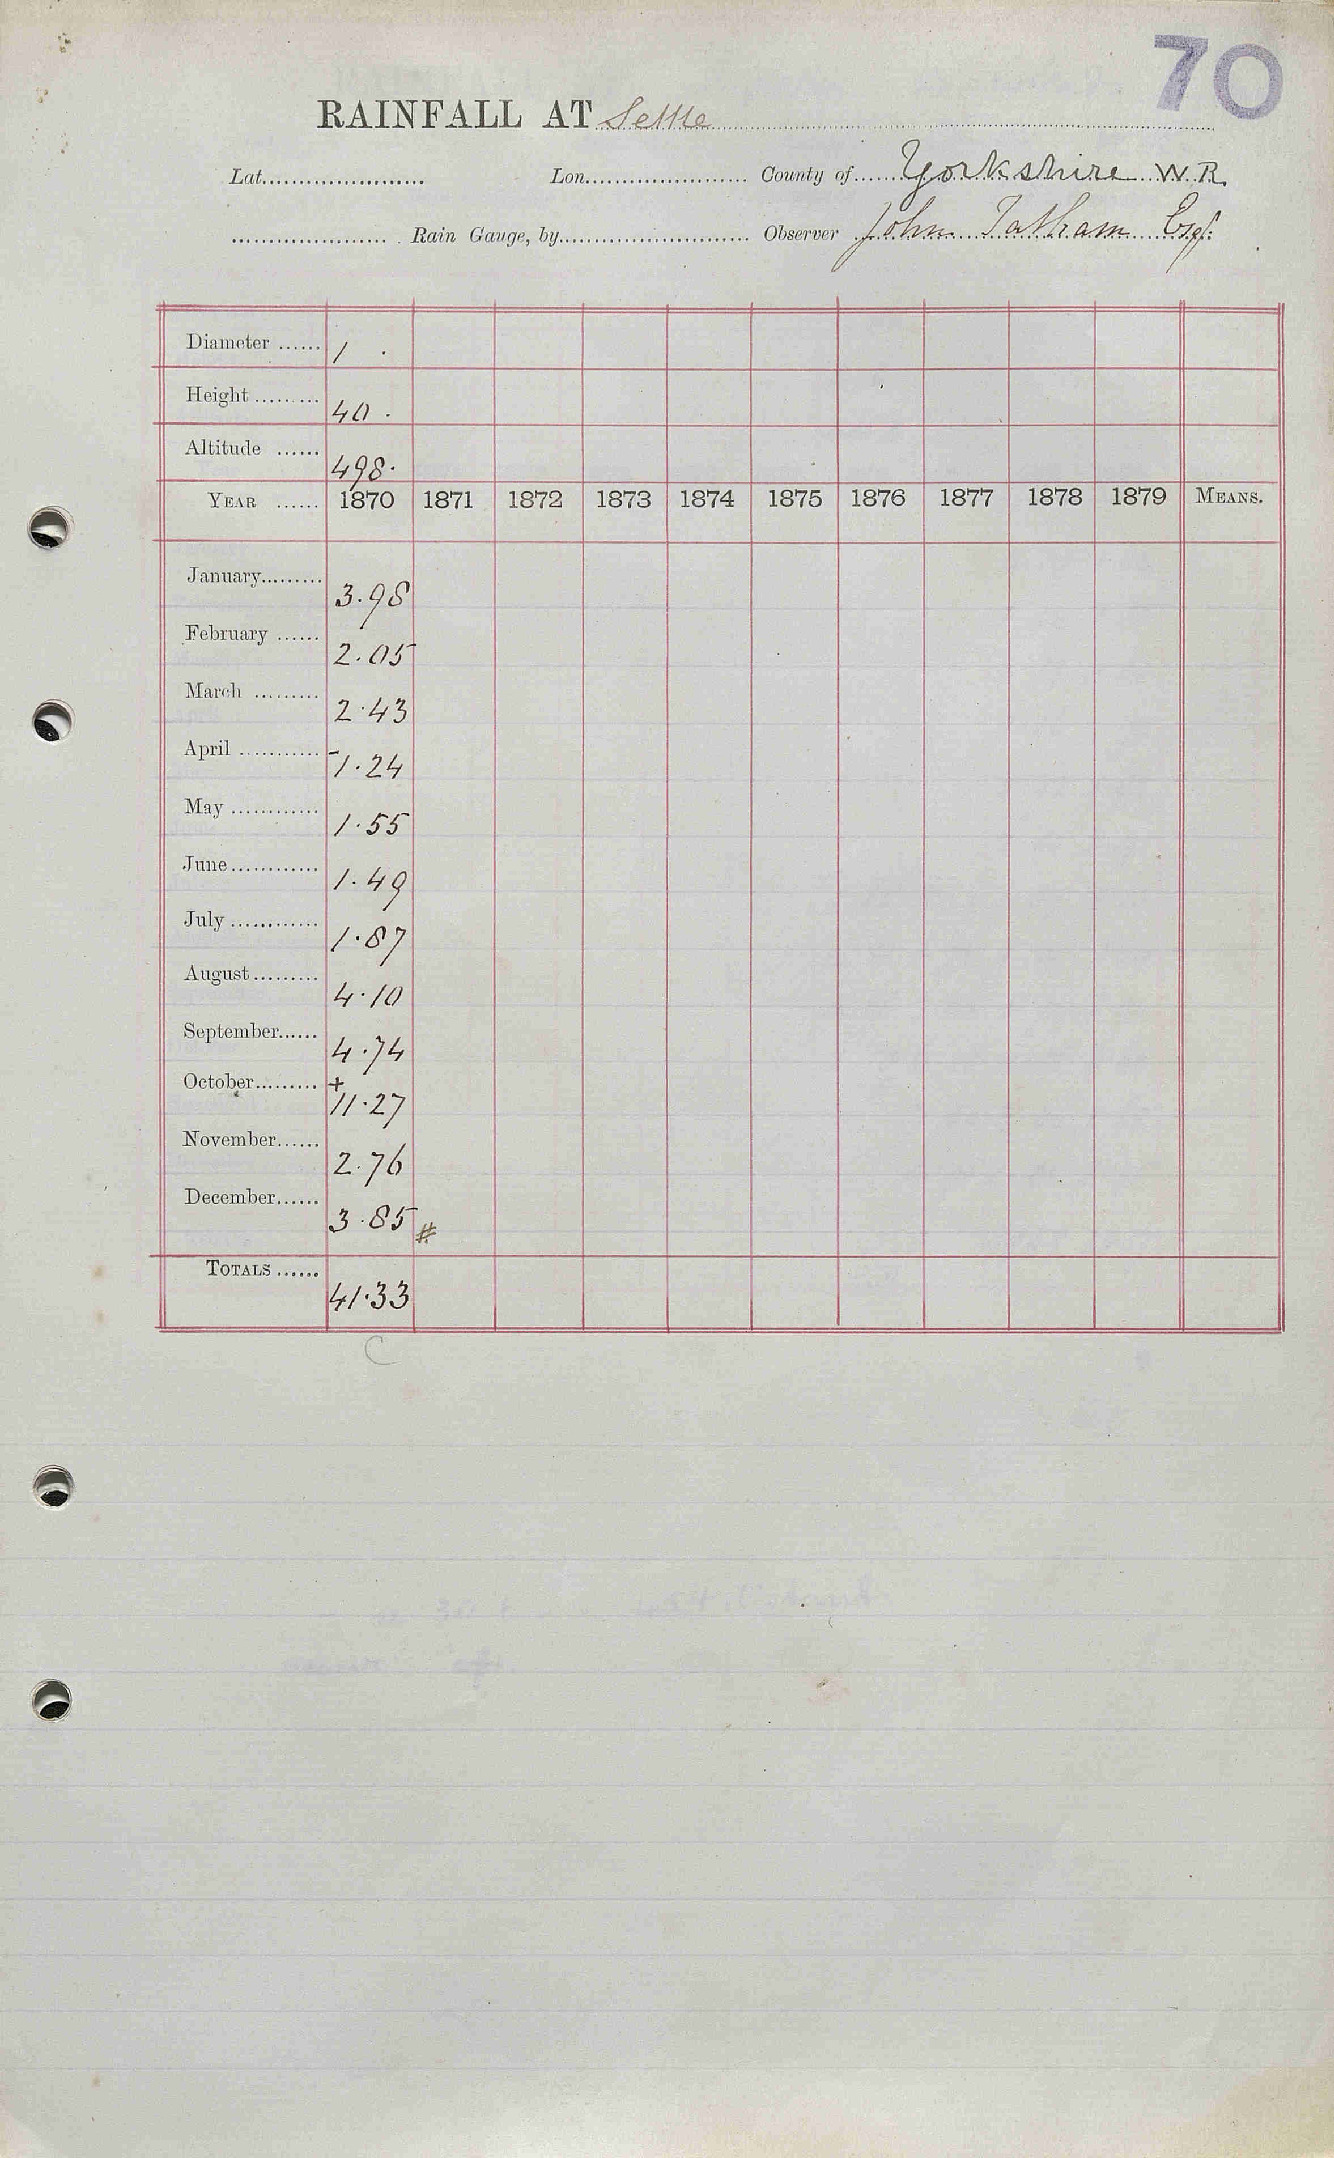 70
RAINFALL AT Settle
Lat. Lon. County of Yorkshire W.R.
Rain Gauge, by Observer John Tatham Esq.
Diameter ...... 1
Height ......... 40.
Altitude ...... 498.
YEAR ...... 1870 1871 1872 1873 1874 1875 1876 1877 1878 1879 MEANS.
January......... 3.98
February ...... 2.05
March ......... 2.43
April ............ - 1.24
May ............ 1.55
June............ 1.49
July ............ 1.87
August......... 4.10
September...... 4.74
October......... + 11.27
November...... 2.76
December...... 3.85 #
TOTALS ...... 41.33
C